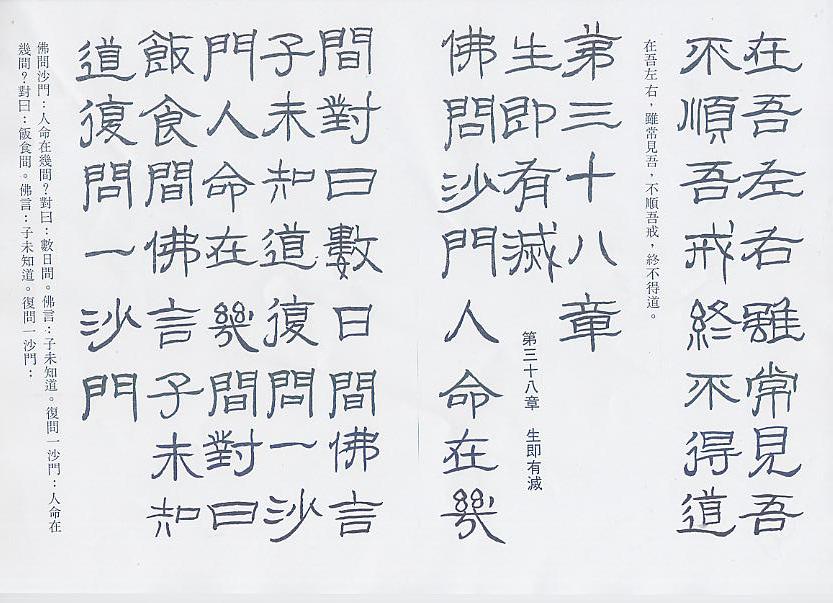 在吾左右雖常見吾
不順吾戒終不得道
在吾左右，雖常見吾，不順吾戒，終不得道。
第三十八章
生即有滅
第三十八章　生即有滅
佛問沙門人命在幾
間對曰數日間佛言
子未知道復問一沙
門人命在幾間對曰
飯食間佛言子未知
道復問一沙門
佛問沙門：人命在幾間？對曰：數日間。佛言：子未知道。復問一沙門：人命在
幾間？對曰：飯食間。佛言：子未知道。復問一沙門：